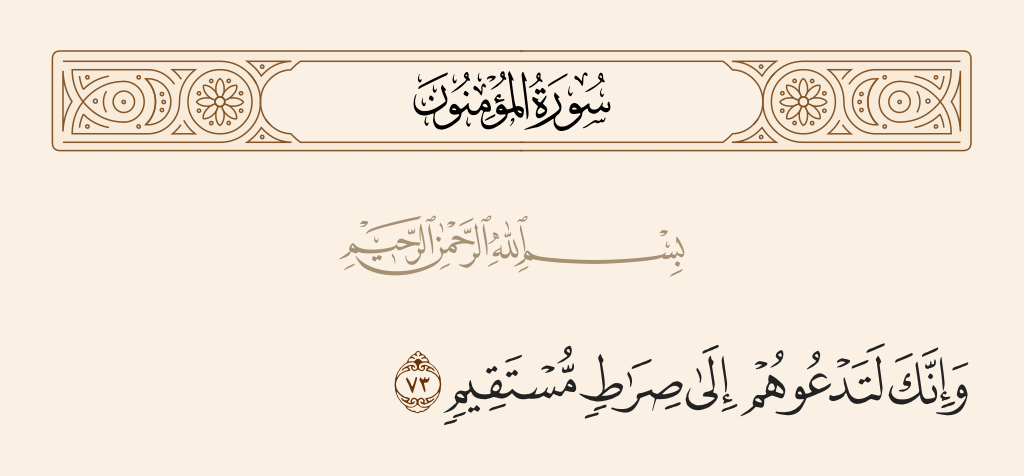 سُورَةُ المُؤْمِنُونَ
بِسْمِ ٱللَّهِ ٱلرَّحْمَٰنِ ٱلرَّحِيمِ
وَإِنَّكَ لَتَدْعُوهُمْ إِلَىٰ صِرَٰطٍ مُّسْتَقِيمٍ ٧٣